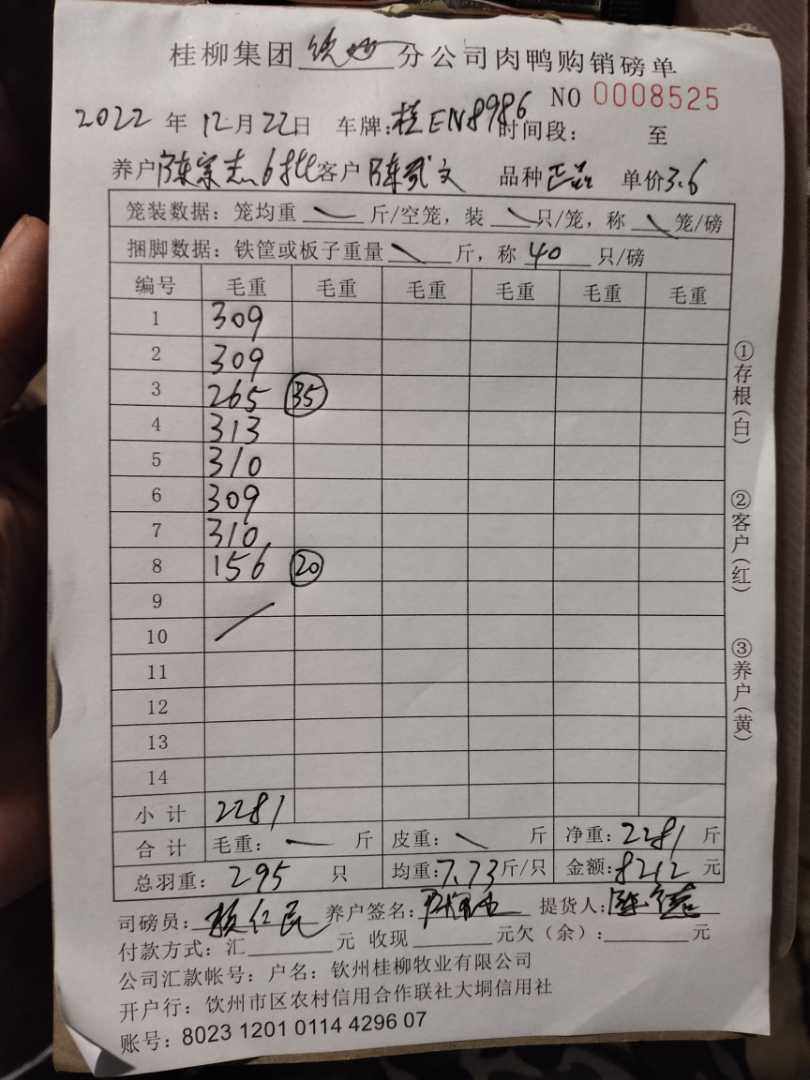 桂柳集团 分公司肉鸭购销磅单
NO 0008525
2022 年 12月22日 车牌:桂EN8986 时间段: 至
养户 陈宗志6批 客户 陈武文 品种 正品 单价3.6
笼装数据:笼均重 斤/空笼,装 只/笼,称 笼/磅
捆脚数据:铁筐或板子重量 斤,称 40 只/磅
编号 毛重 毛重 毛重 毛重 毛重 毛重
1 309
2 309
3 265 35
4 313
5 310
6 309
7 310
8 156 20
9
10
11
12
13
14
小计 2281
合计 毛重: 斤 皮重: 斤 净重:2281 斤
总羽重: 295 只 均重:7.73斤/只 金额:8212 元
司磅员: 养户签名: 提货人:
付款方式:汇 元 收现 元欠(余): 元
公司汇款帐号:户名:钦州桂柳牧业有限公司
开户行:钦州市区农村信用合作联社大垌信用社
账号:8023 1201 0114 4296 07
①存根(白)
②客户(红)
③养户(黄)